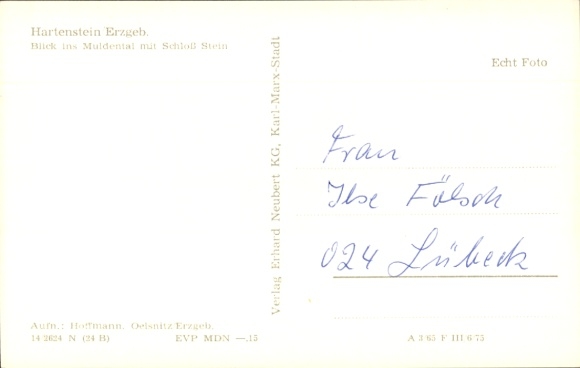 Hartenstein Erzgeb.
Blick ins Muldental mit Schloß Stein
Echt Foto
Verlag Erhard Neubert KG, Karl-Marx-Stadt
Frau
Ilse Fölsch
024 Lübeck
Aufn.: Hoffmann, Oelsnitz/Erzgeb.
14 2624 N (24 B) EVP MDN —.15
A 3 65 F III 6 75